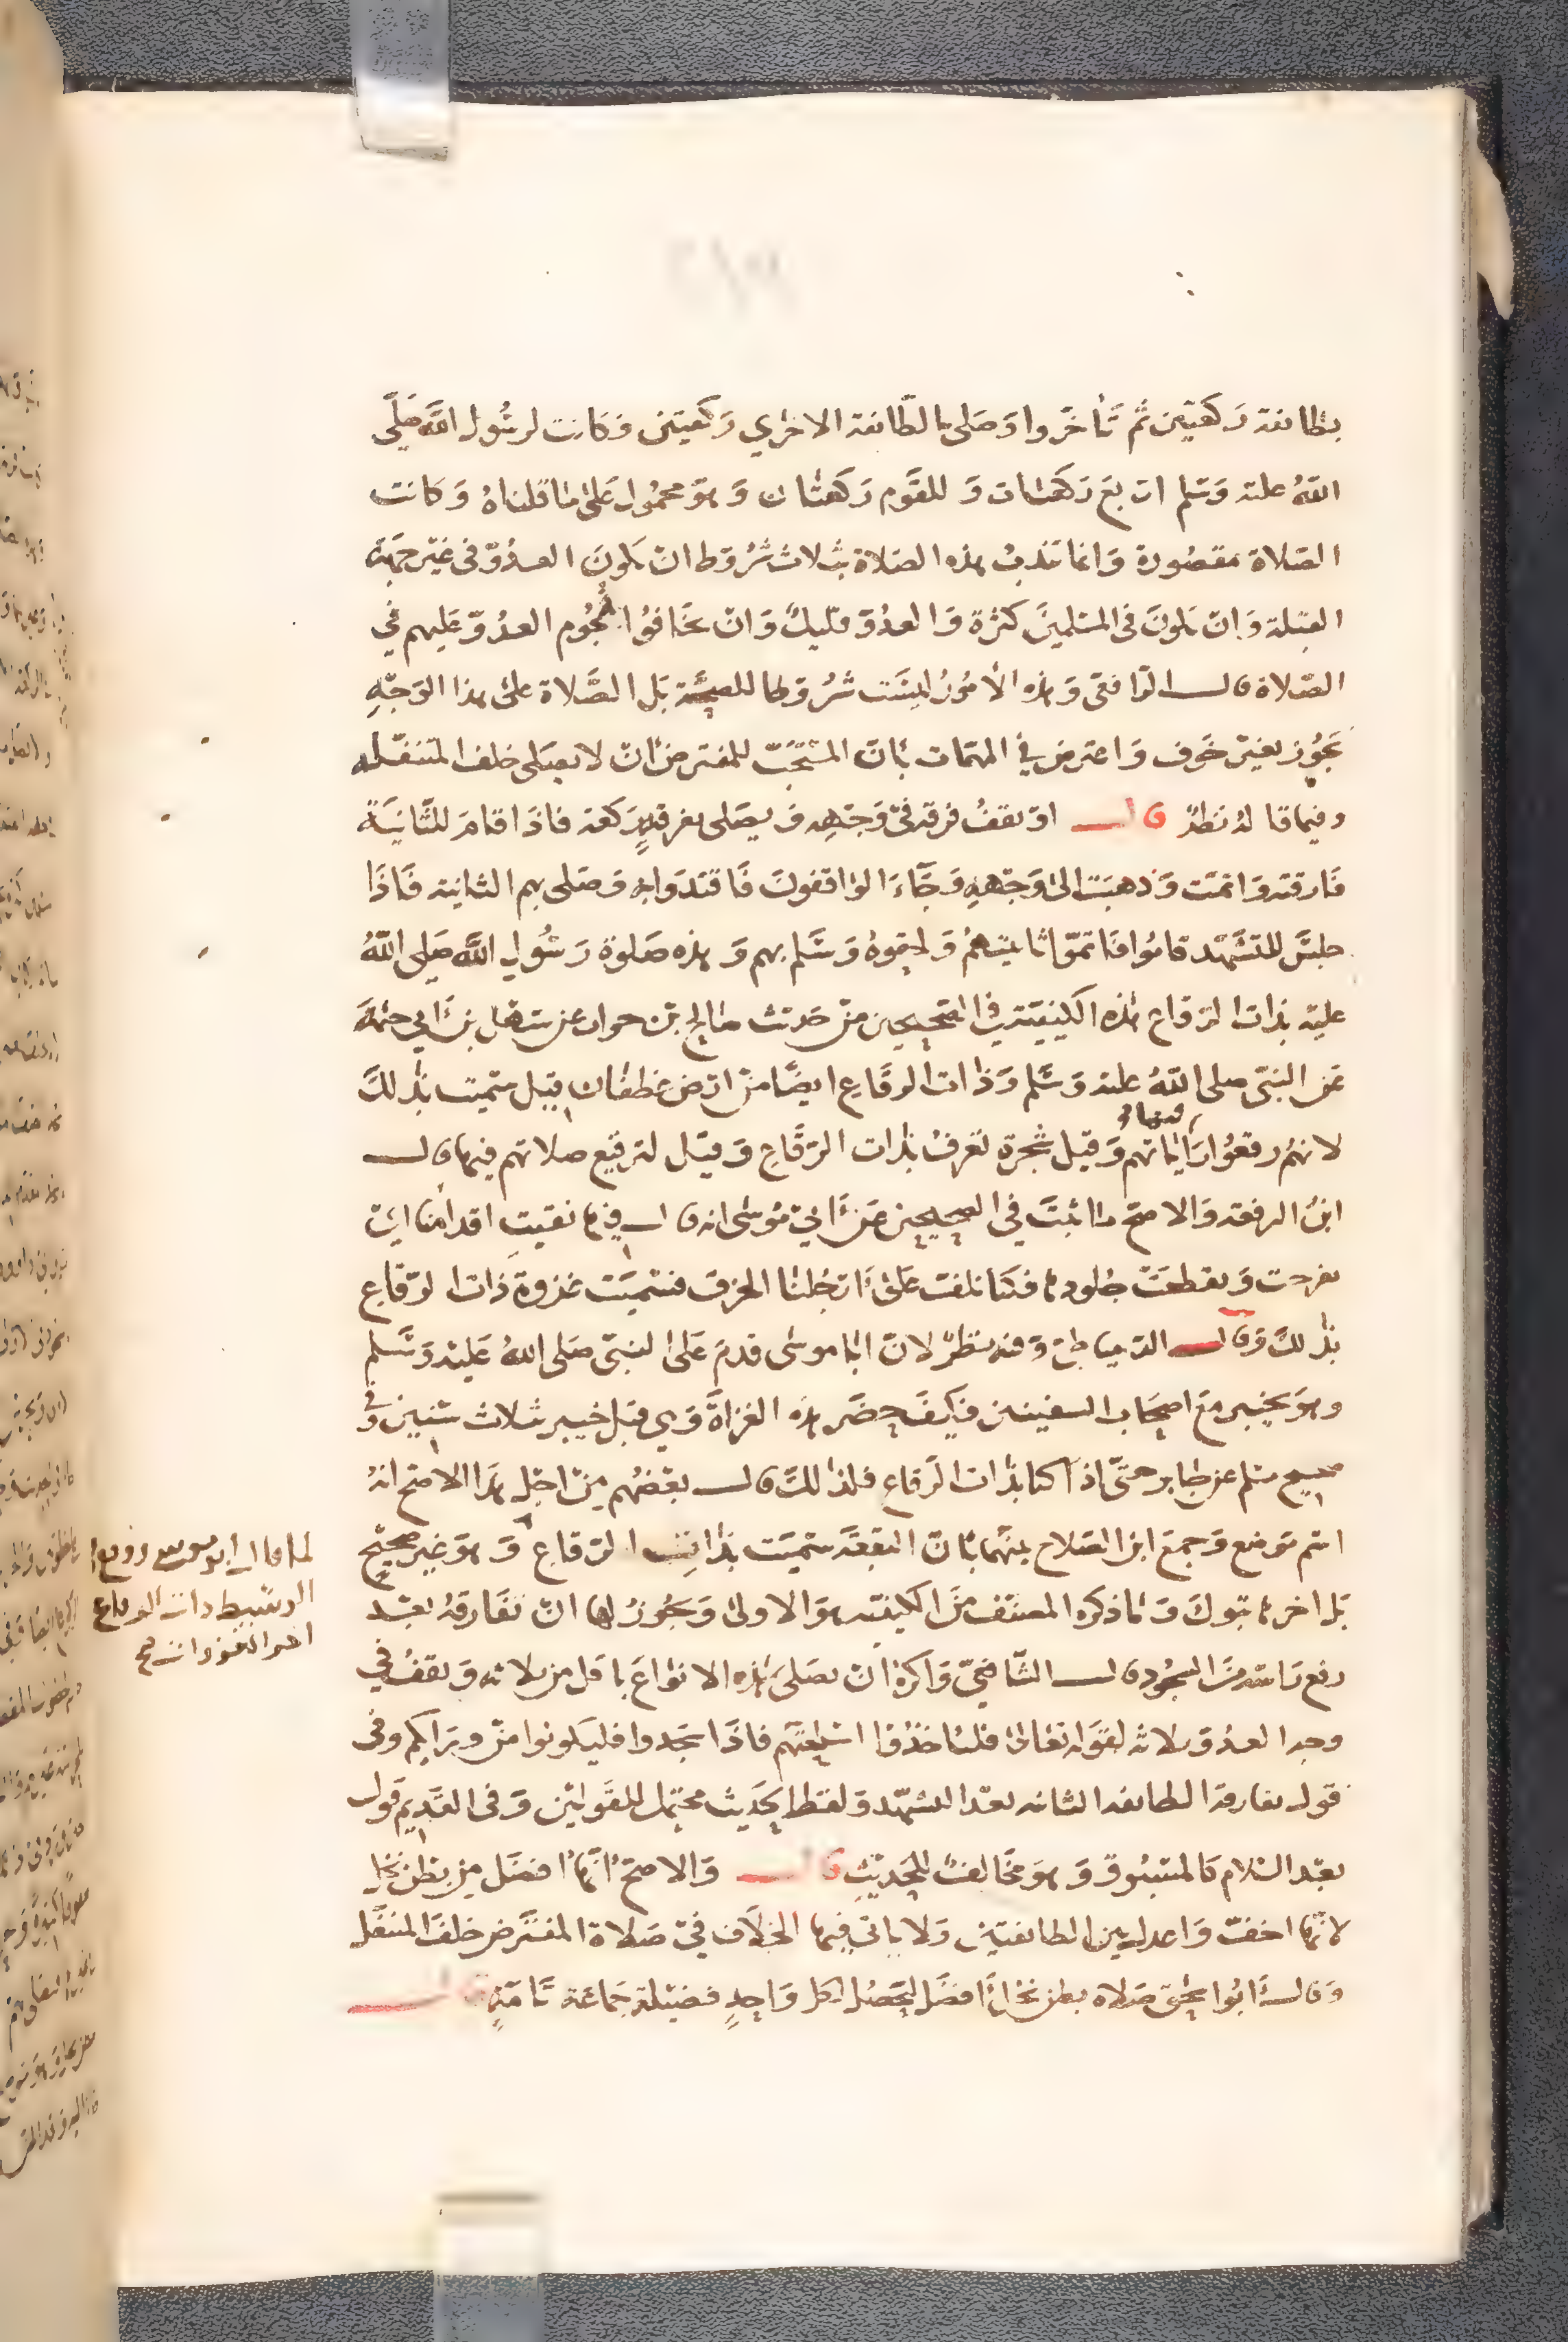 بطائفة ركعتين ثم تأخروا وصلى بالطائفة الاخري ركعتين وكانت لرسول الله صلى
الله عليه وسلم اربع ركعات و للقوم ركعتان و هو محمول على ما قلناه و كانت
الصلاة مقصورة وانما تندب هذه الصلاة بثلاث شروط ان يكون العدو في غير جهة
القبلة وان يكون في المسلمين كثرة والعدو قليل وان يخافوا هجوم العدو عليهم في
الصلاة قال الرافعي وهذه الامور ليست شروطا للصحة بل الصلاة على هذا الوجه
يجوز بغير خوف واعترض في المهمات بان المستحب للمفترض ان لا يصلى خلف المتنفل
وفيما قاله نظر قال او تقف فرقة في وجهه و يصلى بفرقة ركعة فاذا قام للثانية
فارقته واتمت وذهبت الى وجهه وجاء الواقفون فاقتدوا به وصلى بهم الثانية فاذا
جلس للتشهد قاموا فاتموا ثانيتهم ولحقوه وسلم بهم و هذه صلوة رسول الله صلى الله
عليه بذات الرقاع هذه الكيفية في الصحيحين من حديث صالح بن خوات عن سهل بن ابي حثمة
عن النبي صلى الله عليه وسلم وذات الرقاع ايضا من ارض غطفان قيل سميت بذلك
لانهم رقعوا راياتهم وقيل شجرة تعرف بذات الرقاع وقيل لترقيع صلاتهم فيها قال
ابن الرفعة والاصح ما ثبت في الصحيحين عن ابي موسى انه قال فيها نقبت اقدامنا اي
تقرحت وتقطعت جلودها فكنا نلف على ارجلنا الخرق فسميت غزوة ذات الرقاع
بذلك وقال الدمياطي وفيه نظر لان ابا موسى قدم على النبي صلى الله عليه وسلم
وهو بخيبر مع اصحاب السفينين فكيف حضر هذه الغزاة وهي قبل خيبر ثلاث سنين وفي
صحيح مسلم عن جابر حتى اذا كنا بذات الرقاع فلذلك قال بعضهم من اجل هذا الاصح انه
اسم موضع وجمع ابن الصلاح بينهما بان البقعة سميت بذات الرقاع و هو غير صحيح
بل اخرها تبوك وما ذكره المصنف من الكيفية هو الاولى ويجوز لها ان تفارقه بعد
رفع راسه من السجود قال الشافعي واكره ان يصلى هذه الانواع باقل من ثلاثة ويقف في
وجه العدو ثلاثة لقوله تعالى فليأخذوا اسلحتهم فاذا سجدوا فليكونوا من ورايكم وفي
قول تفارقه الطائفه الثانيه بعد التشهد ولفظ الحديث محتمل للقولين وفي القديم قول
بعد السلام كالمسبوق وهو مخالف للحديث قال والاصح انها افضل من بطن نخل
لانها اخف واعدل بين الطائفتين ولا ياتي فيها الخلاف في صلاة المفترض خلف المتنفل
وقال ابوا سحق صلاه بطن نخل افضل ليحصل لكل واحد فضيلة جماعة تامة قال
لما قال ابو موسى
الوسيط ذات الرقاع
اخر الغزوات